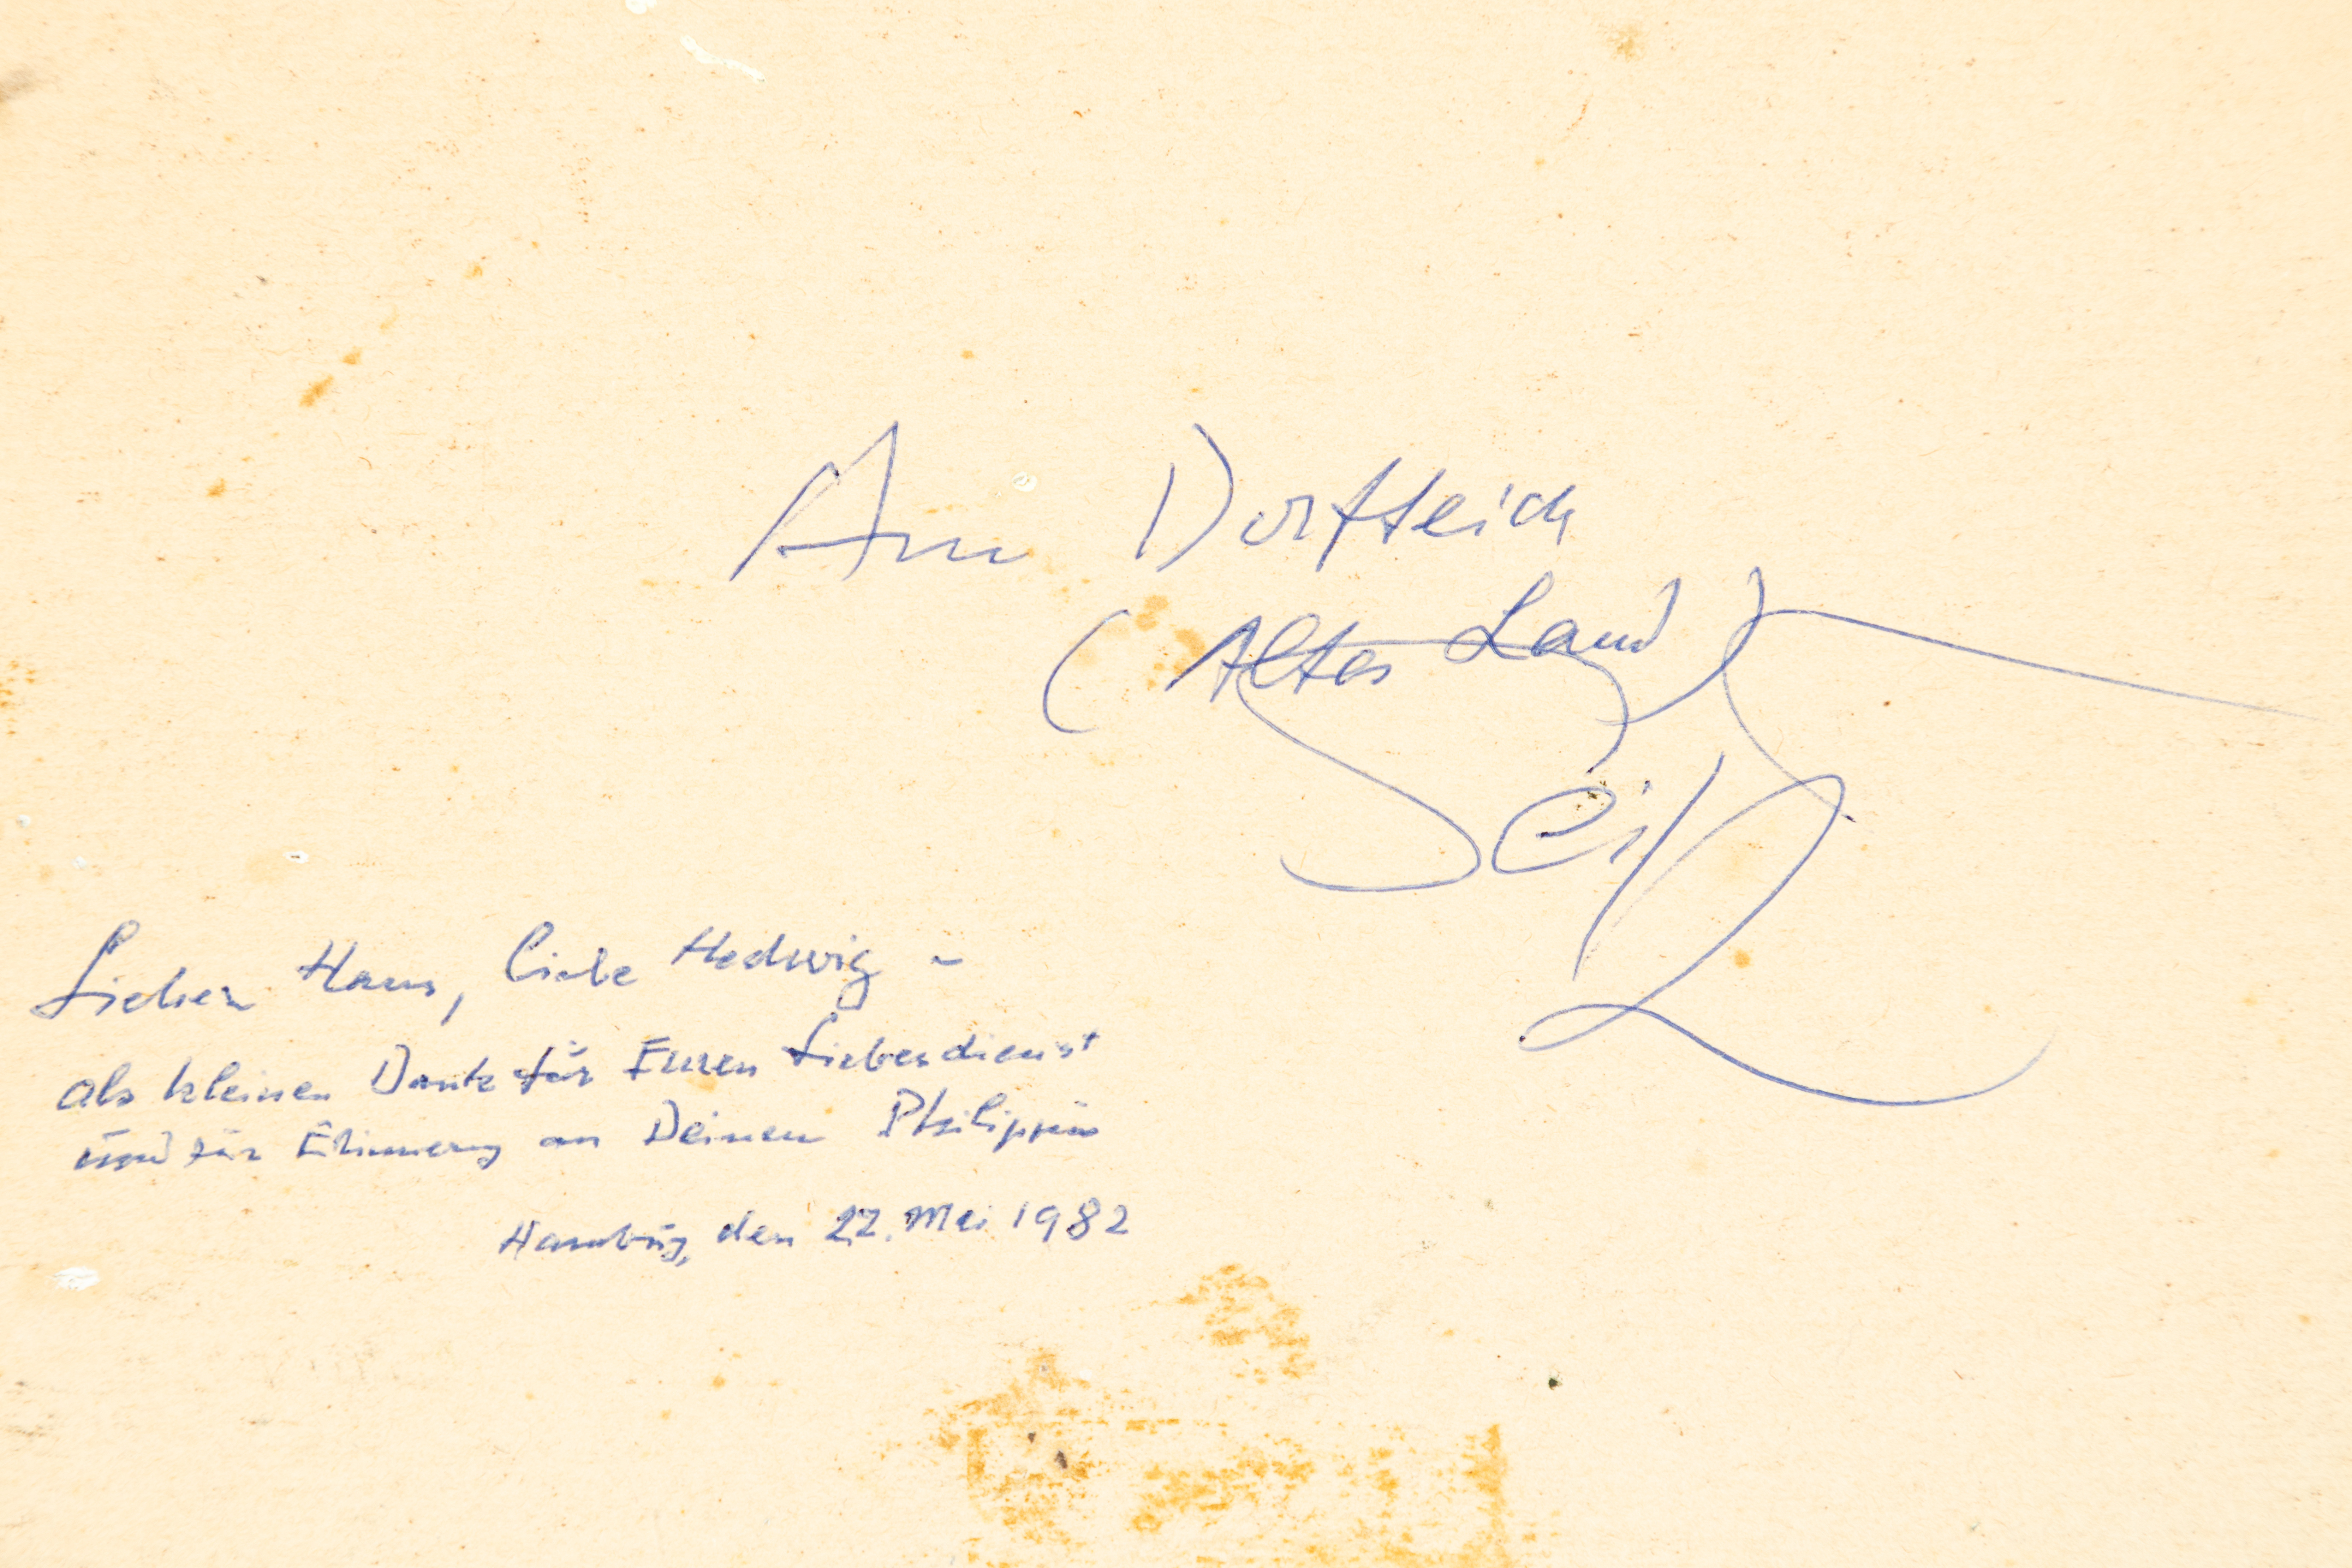 Am Dorfteich
(Altes Land)
Seitz
Lieber Hans, liebe Hedwig -
als kleinen Dank für Euren Liebesdienst
und zur Erinnerung an Deinen
Hamburg, den 22. Mai 1982